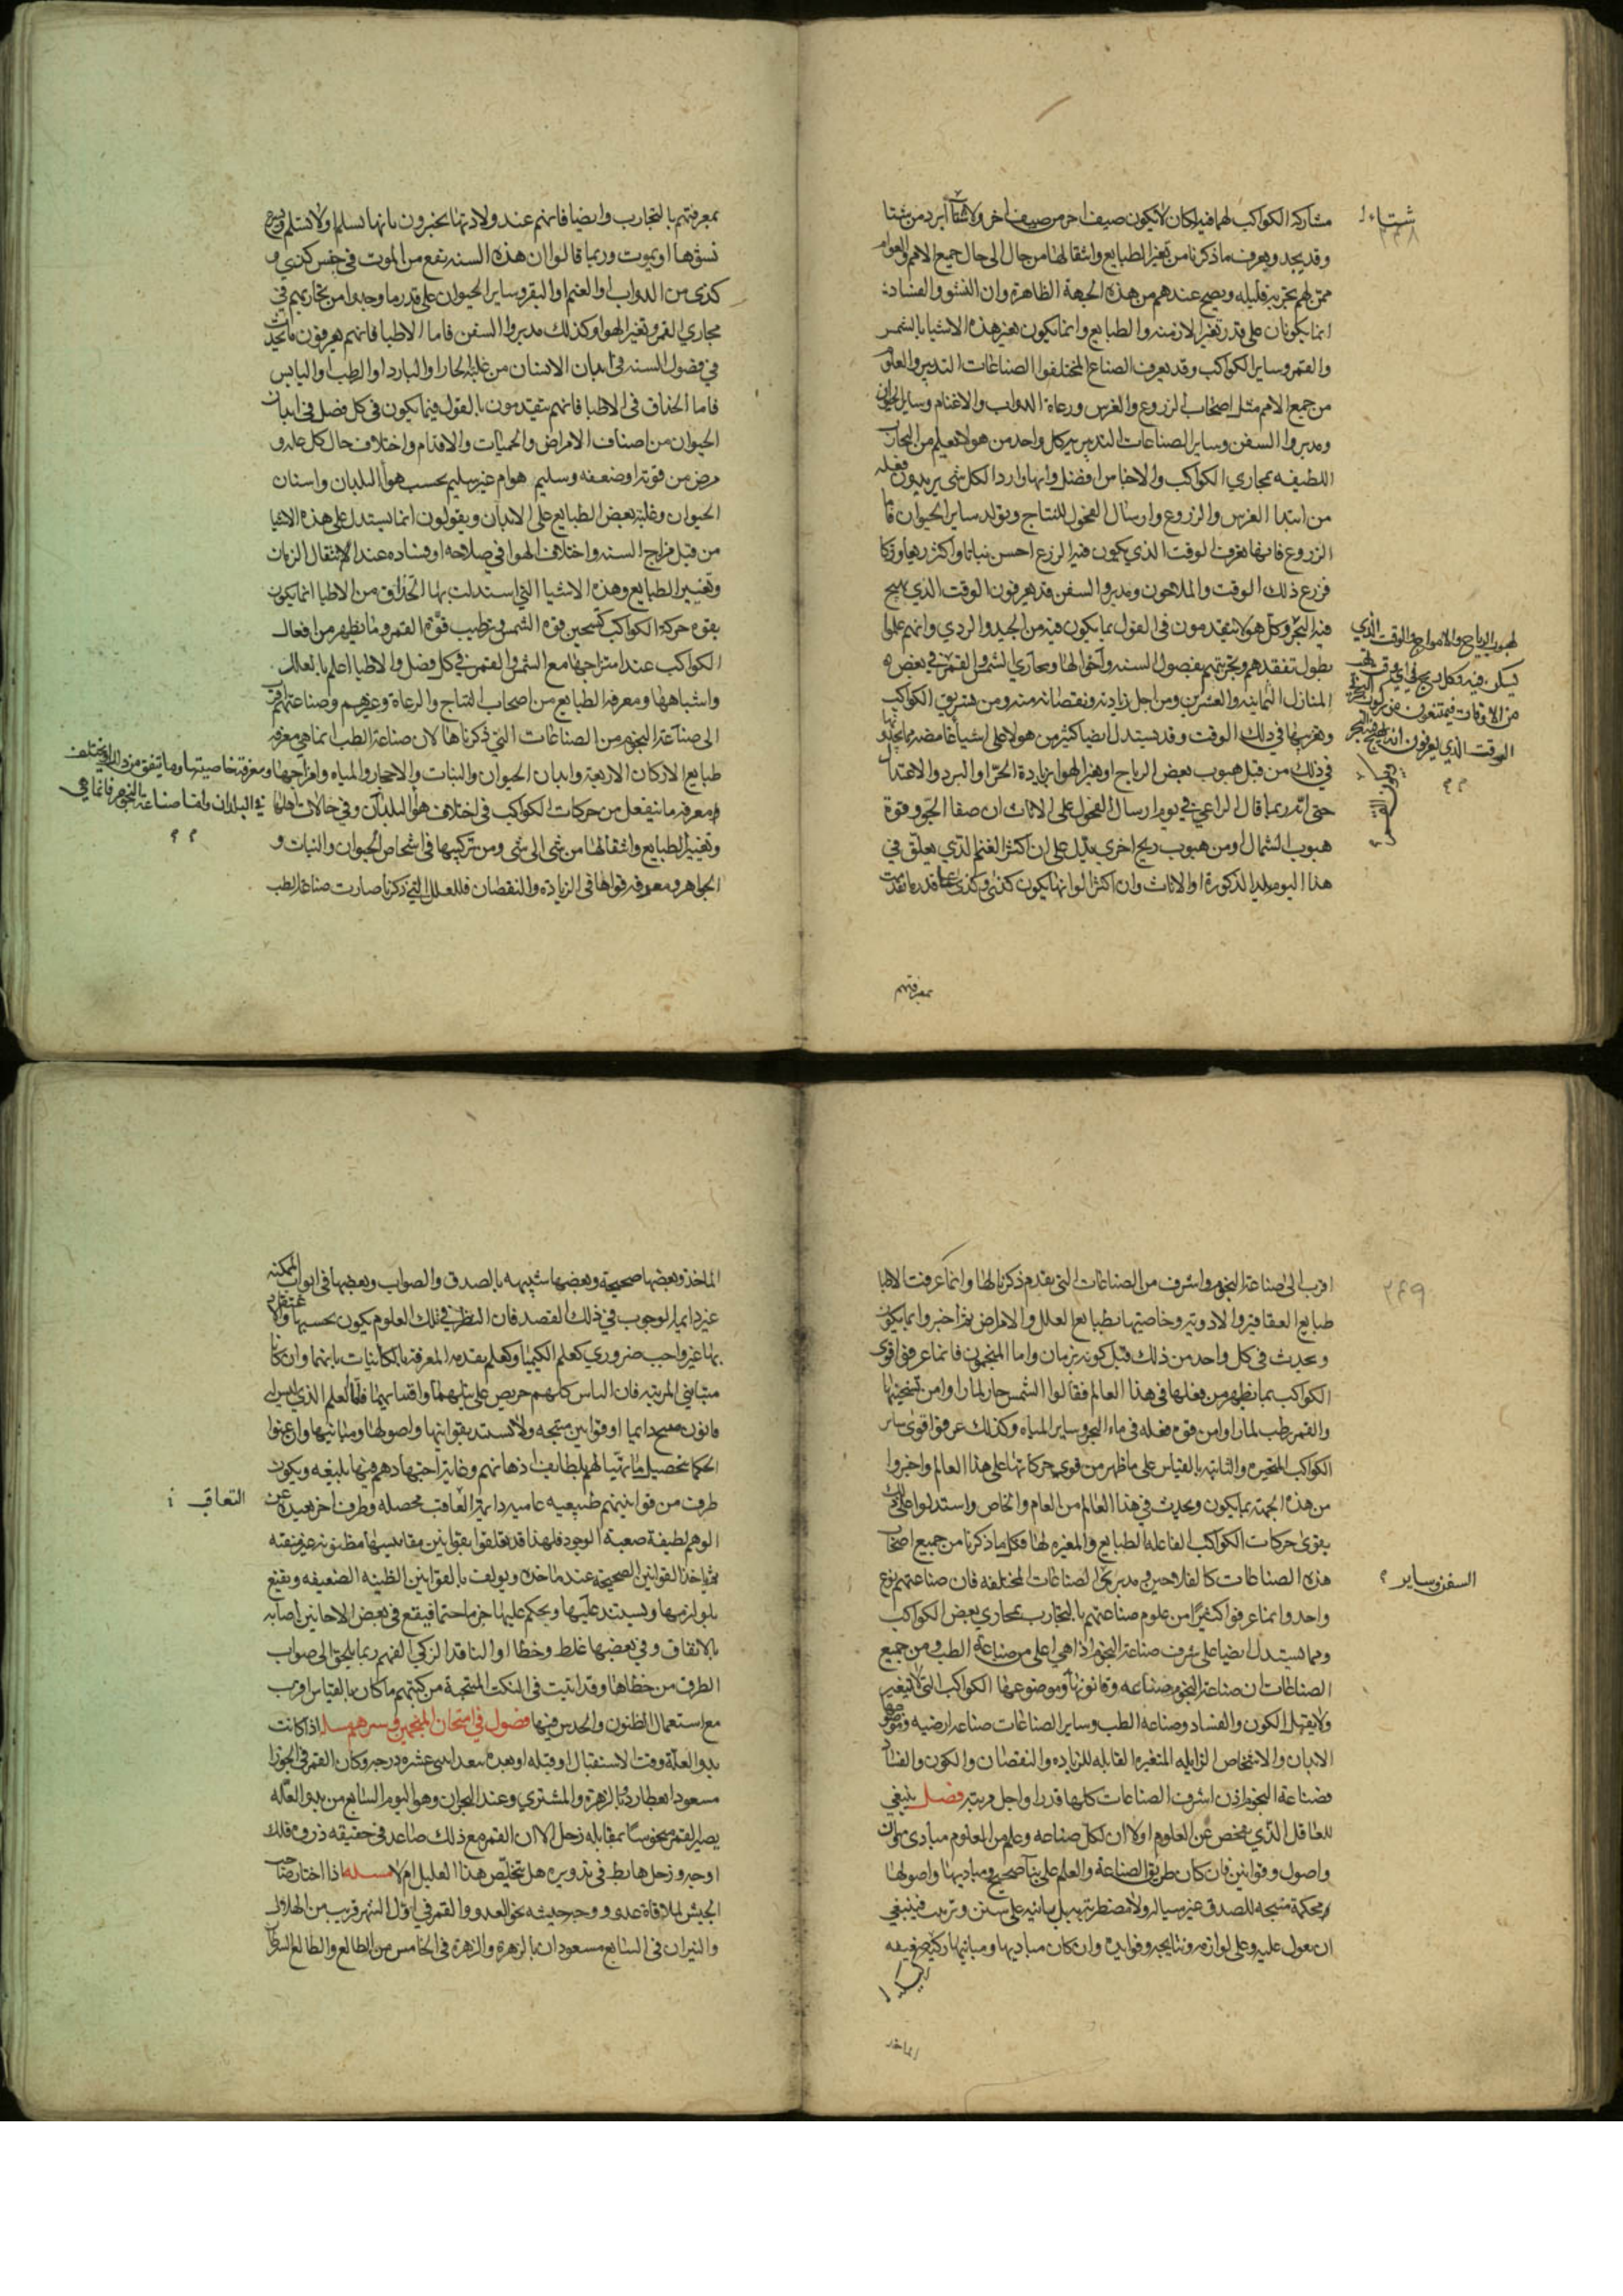 مشاركة الكواكب لهما فيه لكان لا يكون صيف احر من صيف اخر ولا شتآ ابرد من شتا
شتاء
٢٤٨
وقد يجد ويعرف ما ذكرنا من تغير الطبايع وانتقالها من حال الى حال جميع الامم والعوام
ممن لهم تجربة قليله ويصح عندهم من هذه الجهة الظاهرة وان النشو والفساد
انما يكونان على قدر تغير الازمنه والطبايع وانما يكون تغير هذه الاشيا بالشمس
والقمر وساير الكواكب وقد يعرف الصناع المختلفوا الصناعات التدبير والعلو
من جميع الامم مثل اصحاب الزروع والغرس ورعاة الدواب والاغنام وساير الحيوان
ومدبروا السفن وساير الصناعات التدبير كل واحد من هولا يعلم من التجارب
اللطيفه بمجاري الكواكب والاجناس افضل وانها وارد الكل شى يريدون فعله
من ابتدا الغرس والزروع وارسال الفحول للنتاج وتولد ساير الحيوان فاما
الزروع فانها تعرف الوقت الذي يكون فيه الزرع احسن نباتا واكثر ريعا وزكا
فزرع ذلك الوقت والملاحون ومدبروا السفن قد يعرفون الوقت الذي يهيج
فيه البحر وكل هولا يتقدمون فى القول بما يكون فيه من الجيد والردي وانهم علموا
لهبوب الرياح والامواج والوقت الذي
يسكن فيه وكل ريح في اي وقت تهب
من الاوقات فيمتنعون من ركوب البحر في
الوقت الذي يعرفون انه يهيج فيه البحر
بطول تفقدهم وتجربتهم بفصول السنه واخوالها ومجاري الشمس والقمر في بعض
المنازل الثمانيه والعشرين ومن اجل زيادته ونقصانه منه ومن تشريق الكواكب
وتغريبها في ذلك الوقت وقد يستدل ايضا كثير من هولا على اشيا غامضه مما يحدثه
في ذلك من قبل هبوب بعض الرياح او تغير الهوا بزيادة الحر او البرد والاعتدال
حتى انه ربما قال الراعي في يوم ارسال الفحول على الاناث ان صفا الجو وقوة
هبوب الشمال او من هبوب ريح اخرى يدل على ان اكثر الغنم الذي يعلق في
هذا اليوم يلد الذكورة او الاناث وان اكثر الوانها يكون كذى وكذى على قدر ما تقدمت
بمعرفتهم
بمعرفتهم بالتجارب وايضا فانهم عند ولادتها يخبرون بانها تسلم او لا تسلم
نشوها او يموت وربما قالوا ان هذه السنه تقع من الموت في جنس كذى و
كذى من الدواب او الغنم او البقر وساير الحيوان على قدر ما وجدوا من تجاربهم في
مجاري القمر وتغير الهوا وكذلك مدبروا السفن فاما الاطبا فانهم يعرفون ما يحدث
في فصول السنه فى ابدان الانسان من غلبة الحار او البارد او الرطب او اليابس
فاما الحذاق فى الاطبا فانهم يتقدمون بالقول فيما يكون في كل فصل في ابدان
الحيوان من اصناف الامراض والحميات والاقدام واختلاف حال كل علة و
مرض من قوته او ضعفه وسليم هوام غير سليم بحسب هوا البلدان واسنان
الحيوان وغلبة بعض الطبايع على الابدان ويقولون انما يستدل على هذه الاشيا
من قبل مزاج السنه واختلاف الهوا في صلاحه او فساده عند الانتقال الزمان
وتغيير الطبايع وهذه الاشيا التي استدلت بها الحذاق من الاطبا انما يكون
بقوه حركة الكواكب كتسخين قوه الشمس وترطيب قوة القمر وما يظهر من افعال
الكواكب عند امتزاجها مع الشمس والقمر في كل فصل والاطبا اعلم بالعلل
واشباهها ومعرفه الطبايع من اصحاب النتاج والرعاة وغيرهم وصناعتهم اقرب
الى صناعة النجوم من الصناعات التي ذكرناها لان صناعة الطب انما هي معرفه
طبايع الاركان الاربعة وابدان الحيوان والنبات والاحجار والمياه وامزاجها ومعرفة خاصيتها وما يتفق من ذلك ويختلف
ومعرفه ما ينفعل من حركات الكواكب في اختلاف هوا البلدان وفي حالات اهلها في البلدان واما صناعة النجوم فانما هي
وتغيير الطبايع وانتقالها من شى الى شى ومن تركيبها في اشخاص الحيوان والنبات و
الجواهر ومعرفه قواها في الزياده والنقصان فللعلل التي ذكرنا صارت صناعة الطب
اقرب الى صناعة النجوم واشرف من الصناعات التي تقدم ذكرنا لها وانما عرفت الاطبا
٢٤٩
طبايع العقاقير والادويه وخاصيتها بطبايع العلل والامراض ثم اخبروا بما يكون
ويحدث في كل واحد من ذلك قبل كونه بزمان واما المنجمون فانما عرفوا قوى
الكواكب بما يظهر من فعلها في هذا العالم فقالوا الشمس حار لما راوا من تسخينها
والقمر رطب لما راوا من قوه فعله في ماء البحر وساير المياه وكذلك عرفوا قوى ساير
الكواكب المتحيره والثابته بالقياس على ما ظهر من قوى حركاتها على هذا العالم واخبروا
من هذه الجهة بما يكون ويحدث في هذا العالم من العام والخاص واستدلوا على ذلك
بقوى حركات الكواكب الفاعله الطبايع والمغيره لها فكل ما ذكرنا من جميع اصحاب
هذه الصناعات كالفلاحين ومدبري الصناعات المختلفه فان صناعتهم نوع
السفن وساير
واحد وانما عرفوا كثيرًا من علوم صناعتهم بالتجارب بمجاري بعض الكواكب
ومما يستدل ايضا على شرف صناعة النجوم اذ هي اعلى من صناعة الطب ومن جميع
الصناعات ان صناعة النجوم صناعه وقانونها وموضوعها الكواكب التى لا يتغير
ولا يقبل الكون والفساد وصناعه الطب وساير الصناعات صناعة ارضيه وموضوعها
الابدان والاشخاص الزايله المتغيره القابله للزياده والنقصان والكون والفساد
فصناعة النجوم اذن اشرف الصناعات كلها قدرا واجل مرتبه فصل ينبغي
للعاقل الذي يفحص عن العلوم اولا ان لكل صناعه وعلم من العلوم مبادى
واصول وقوانين فان كان طريق الصناعة والعلم على بنآ صحيح ومباديها واصولها
محكمة منتجه للصدق غير سياله ولا مضطربه بل مبانيه على سنن وترتيب فينبغي
ان يعول عليه وعلى لوازمه ونتايجه وفوايده وان كان مباديها ومبانيها ركيكة ضعيفه
الماخذ وبعضها صحيحة وبعضها شبيهه بالصدق والصواب وبعضها في ابواب الممكنه
غير دايما لوجوب في ذلك القصد فان النظر في تلك العلوم يكون بحسبها
بها غير واجب ضروري كعلم الكيميا وكعلم تقدمة المعرفة بالكائنات بابنهما وان كانا
متباينى المرتبه فان الناس كلهم حريص على نيلهما واقتنائهما فاما العلم الذي ليس له
قانون صحيح دايما او قوانين منتجه ولا تستند بقوانينها واصولها ومبانيها وان عنوا
الحكما بتحصيل ما تهيا لهم بلطايف اذهانهم وغاية اجتهادهم فيها بليغه ويكون
طرف من قوانينهم طبيعيه عاميه دايمة العاقب محصله وطرف اخر بعيده عن
التعاقب
الوهم لطيفة صعبة الوجود فلهذا قد تعلقوا بقوانين مقاييسها مظنونه غير متقنه
فياخذ القوانين الصحيحة عند ماخذه ويولف بالقوانين الظنيه الضعيفه ويقنع
بلوازمها ويستند عليها ويحكم عليها جزما حتما فيقع في بعض الاحانين اصابه
بالاتفاق وفي بعضها غلط وخطا او الناقد الزكي الفهم ربما يلحق الى صواب
الطرف من خطاها وقد اثبت في النكت المنتجة من كتبهم ما كان بالقياس اقرب
مع استعمال الظنون والحدس فيها فصول في امتحان المنجمين وسيرهم مسله اذا كانت
بدو العلة وقت الاستقبال او قبله او بعده ببعد اثنى عشره درجه وكان القمر في الجوزا
مسعودا بعطارد وبالزهرة والمشتري وعند البحران وهو اليوم السابع من بدو العله
يصير القمر منحوسا بمقابله زحل الا ان القمر مع ذلك صاعد في حقيقه ذروه فلك
اوجه وزحل هابط في تدويره هل يتخلص هذا العليل ام لا مسله اذا اختار صاحب
الجيش لملاقاة عدوه ووجه جيشه نحو العدو والقمر في اول الشهر قريب من الهلال
والنيران في السابع مسعودان بالزهرة والزهرة في الخامس من الطالع والطالع السرطان